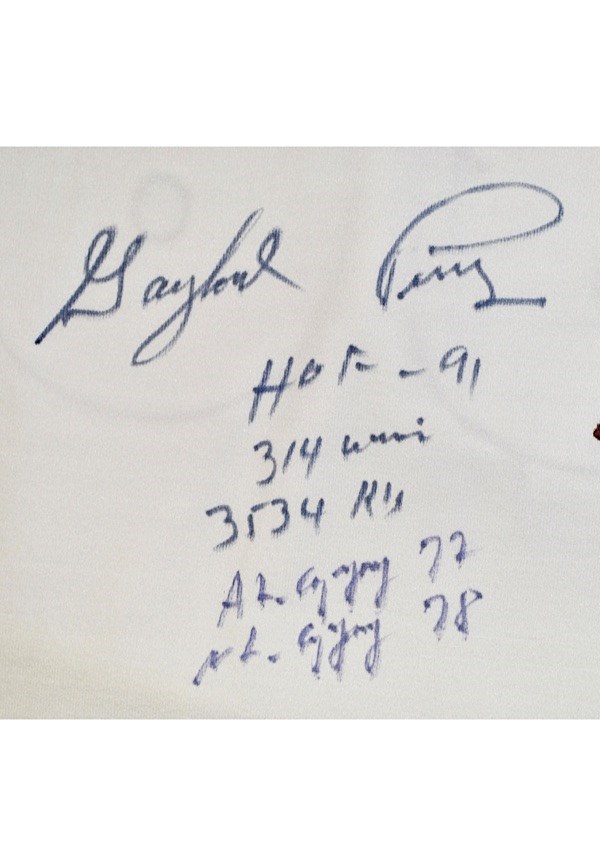 Gaylord Perry
HOF - 91
314 wins
3534 K's
AL. Cy Young 72
NL. Cy Young 78